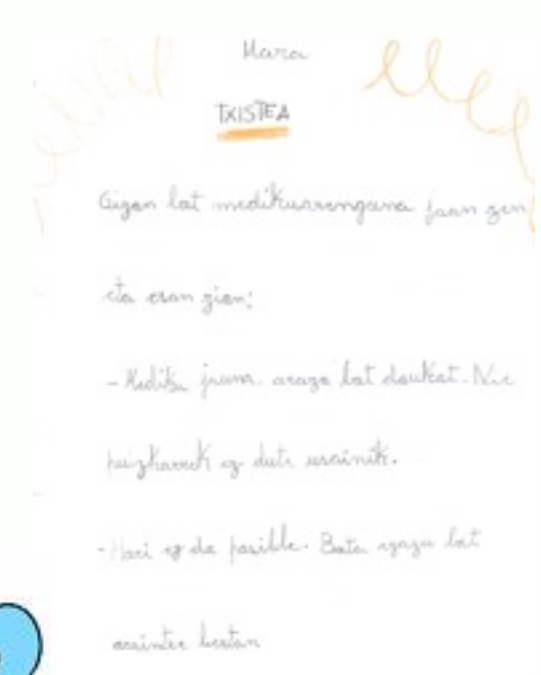 Mara
TXISTEA
Gizon bat medikuarengana joan zen
eta esan zion:
- Mediku jauna. arazo bat daukat. Nire
puizkarrek ez dute usainik.
- Hori ez da posible. Bota ezazu bat
oraintxe bertan